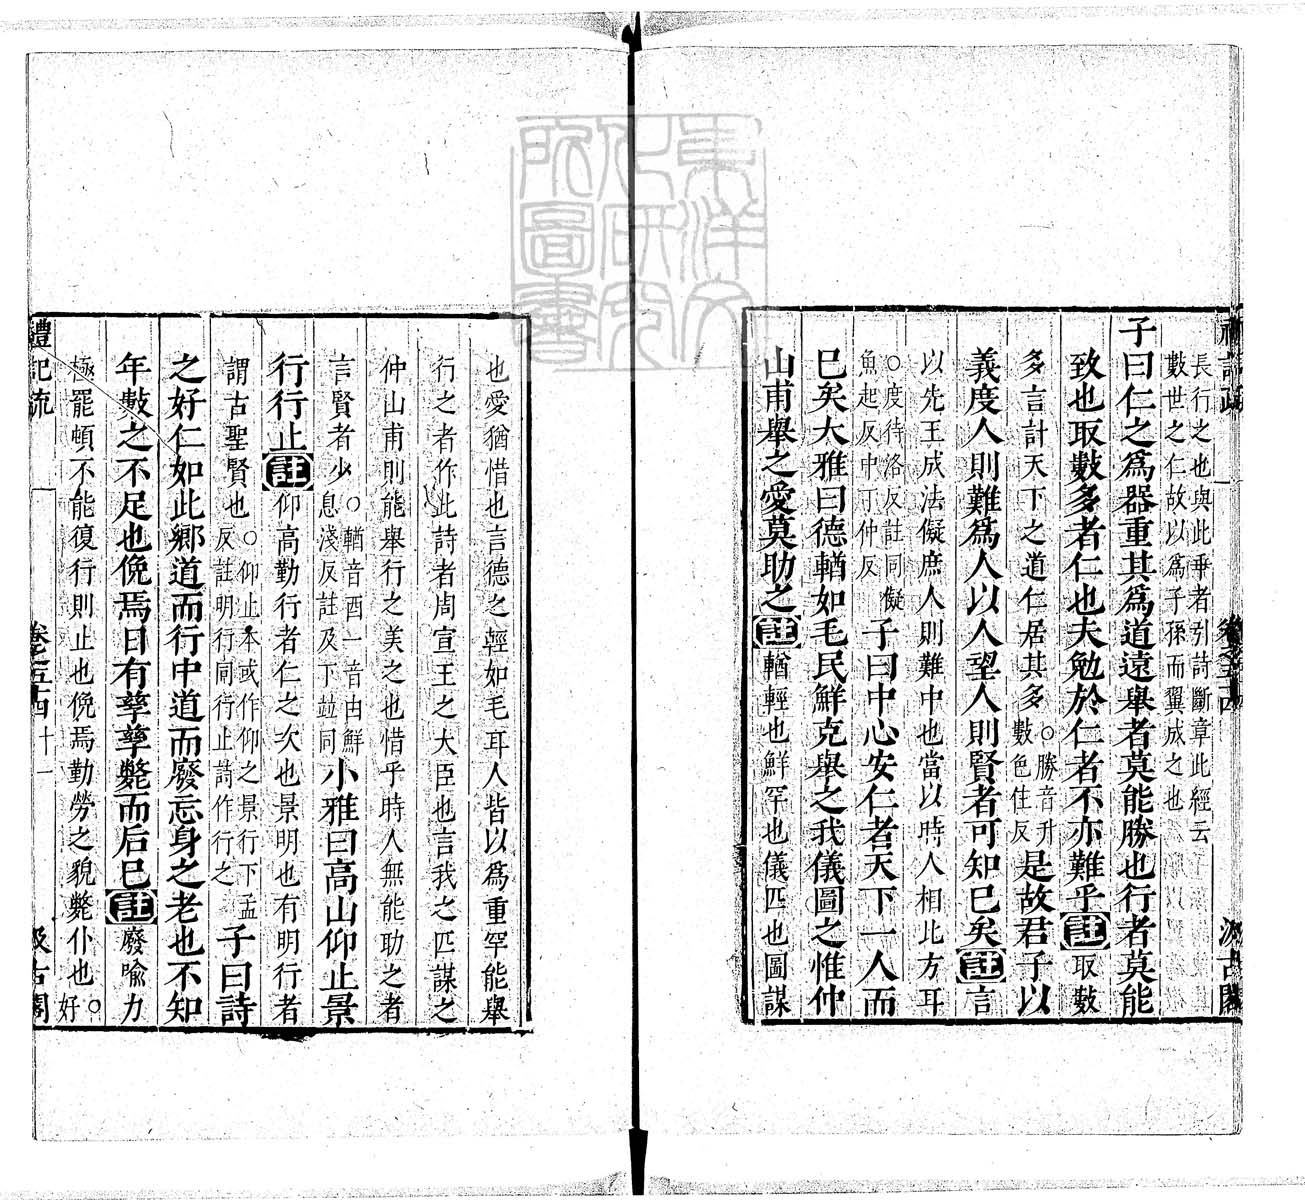 禮記疏 卷五十四 汲古閣
長行之也與此乖者引詩斷章此經云
數世之仁故以爲子孫而翼成之也
子曰仁之爲器重其爲道遠舉者莫能勝也行者莫能
致也取數多者仁也夫勉於仁者不亦難乎註取數
多言計天下之道仁居其多
○勝音升
數色住反
是故君子以
義度人則難爲人以人望人則賢者可知已矣註言
以先王成法儗庶人則難中也當以時人相比方耳
○度待洛反註同儗
魚起反中丁仲反
子曰中心安仁者天下一人而
已矣大雅曰德輶如毛民鮮克舉之我儀圖之惟仲
山甫舉之愛莫助之註輶輕也鮮罕也儀匹也圖謀
也愛猶惜也言德之輕如毛耳人皆以爲重罕能舉
行之者作此詩者周宣王之大臣也言我之匹謀之
仲山甫則能舉行之美之也惜乎時人無能助之者
言賢者少
○輶音酉一音由鮮
息淺反註及下竝同
小雅曰高山仰止景
行行止註仰高勤行者仁之次也景明也有明行者
謂古聖賢也
○仰止本或作仰之景行下孟
反註明行同行止詩作行之
子曰詩
之好仁如此鄉道而行中道而廢忘身之老也不知
年數之不足也俛焉日有孳孳斃而后已註廢喻力
極罷頓不能復行則止也俛焉勤勞之貌斃仆也
○
好
禮記疏 卷五十四 十一 汲古閣
東洋文化研究所圖書